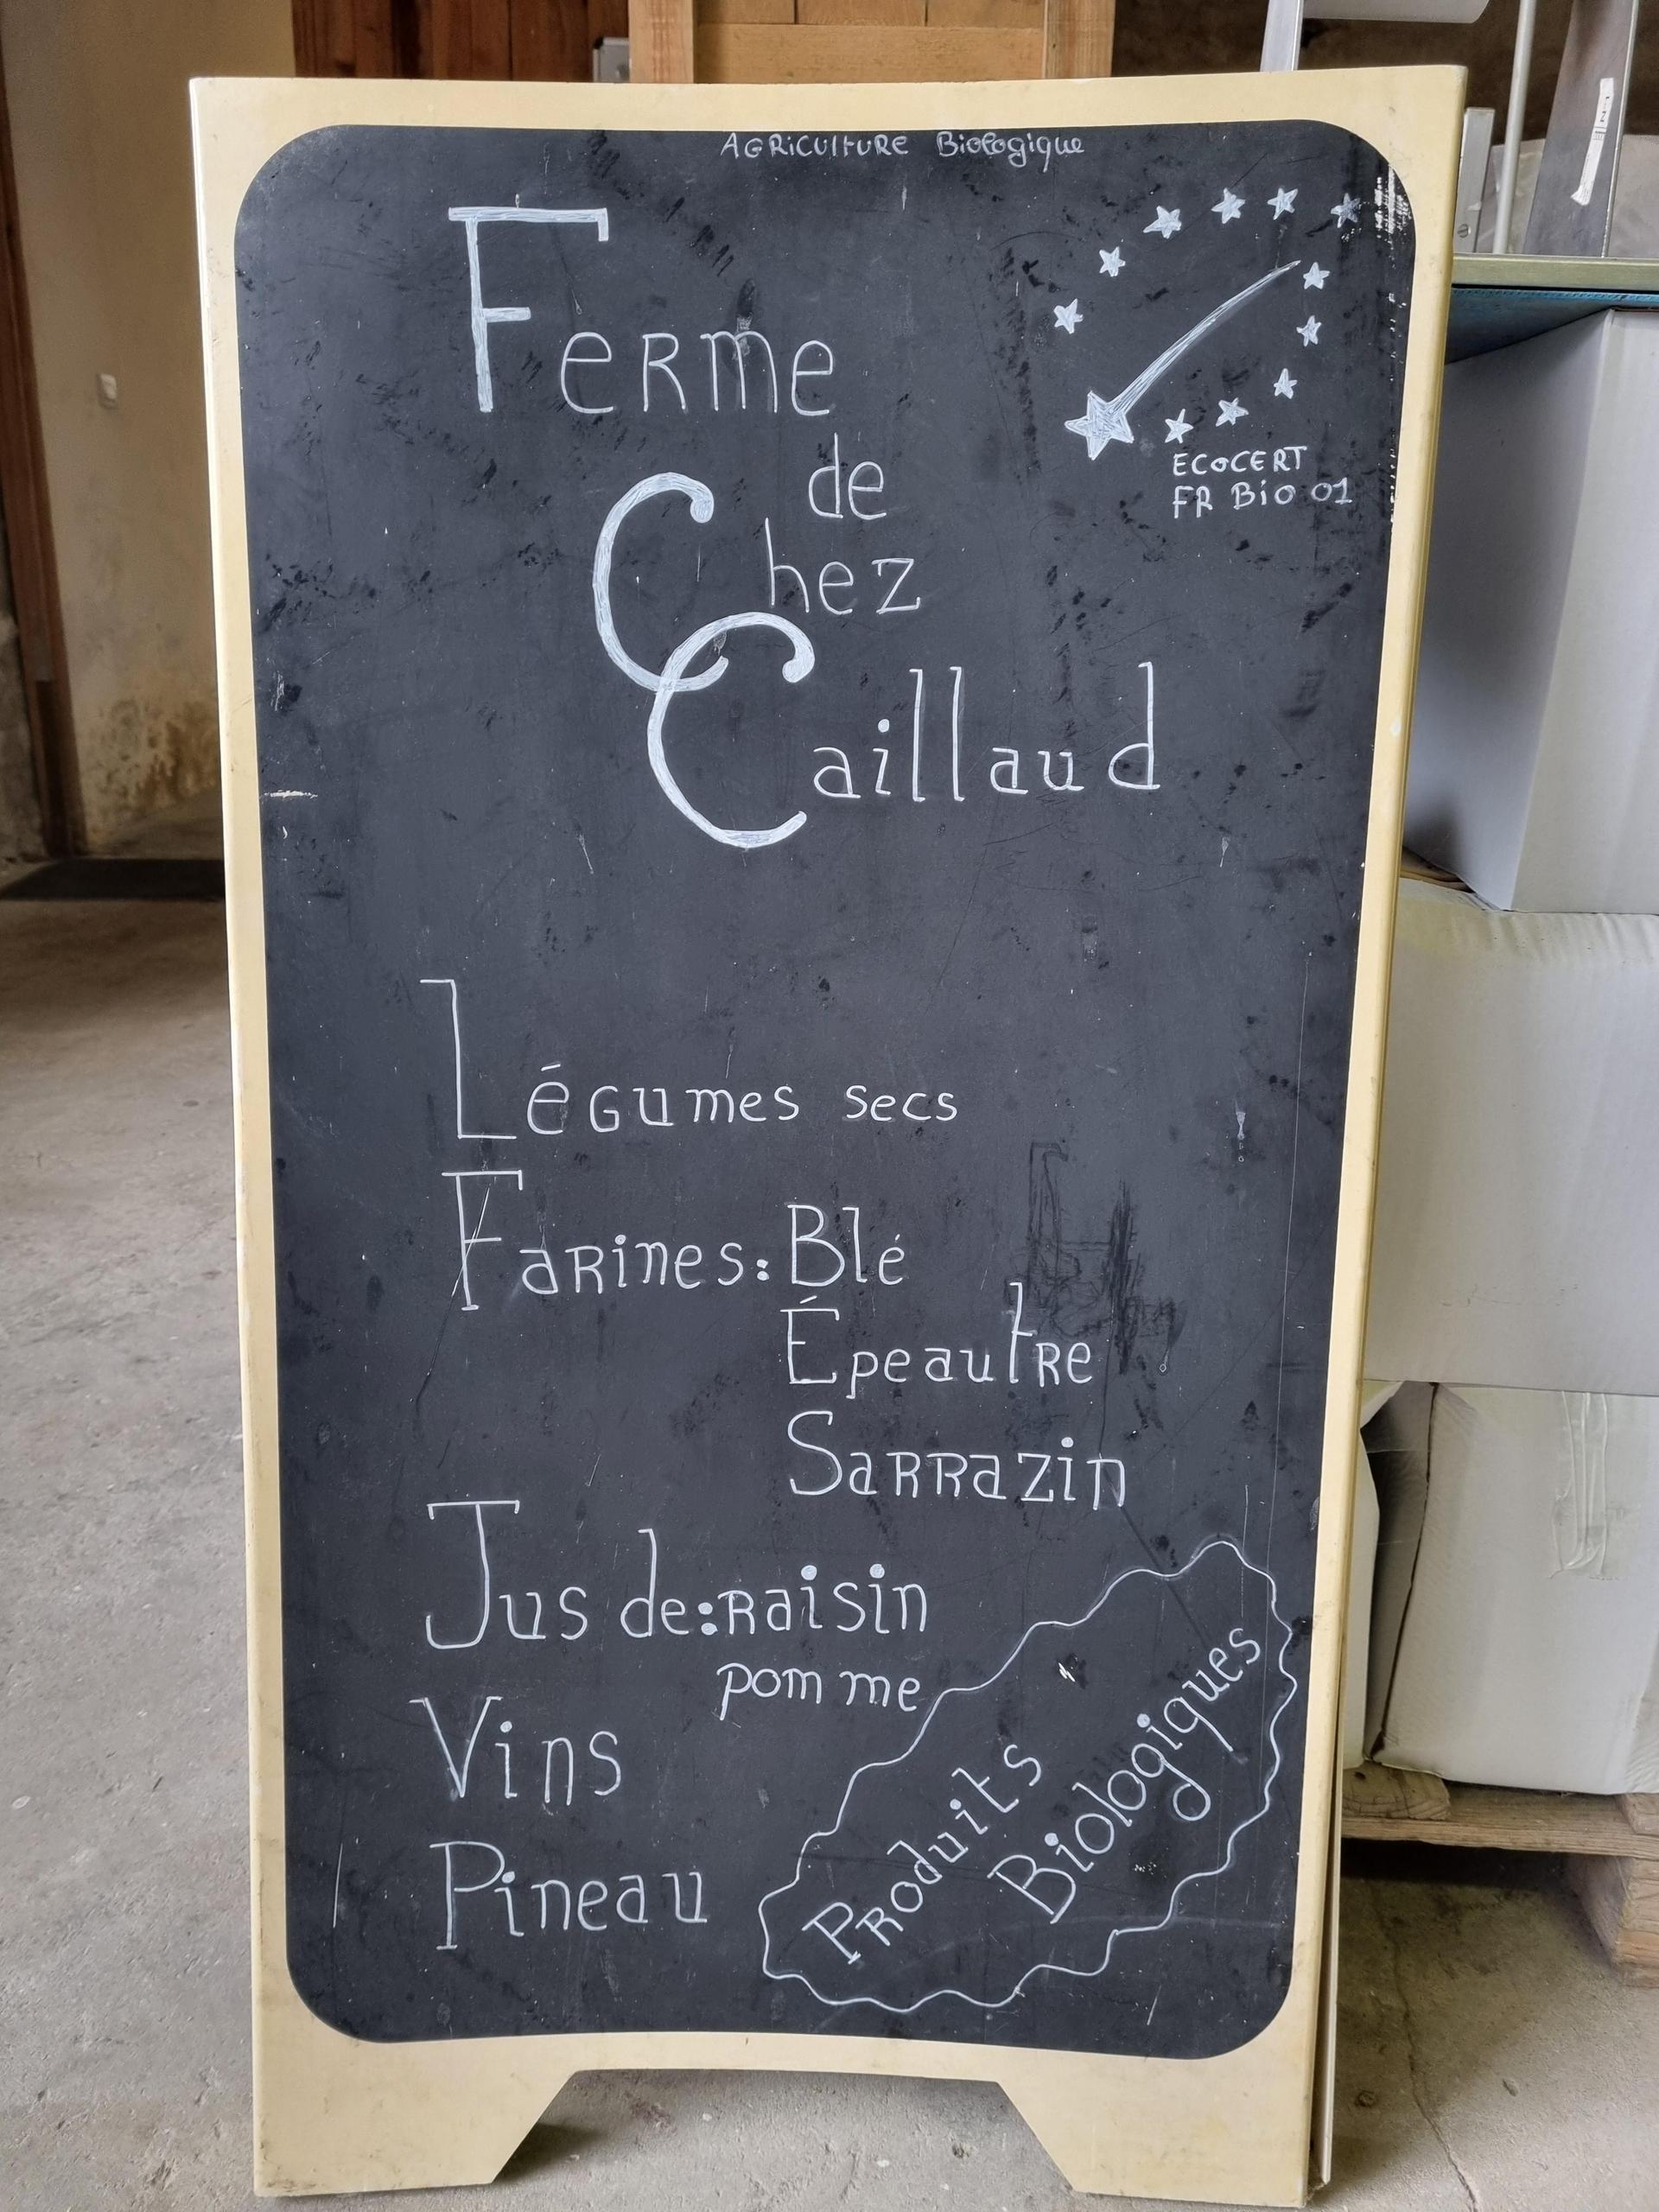 AGRICULTURE Biologique
Ferme
de
Chez
Caillaud
ECOCERT
FR Bio 01
Légumes secs
Farines: Blé
Épeautre
Sarrazin
Jus de: raisin
pomme
Vins
Pineau
Produits
Biologiques